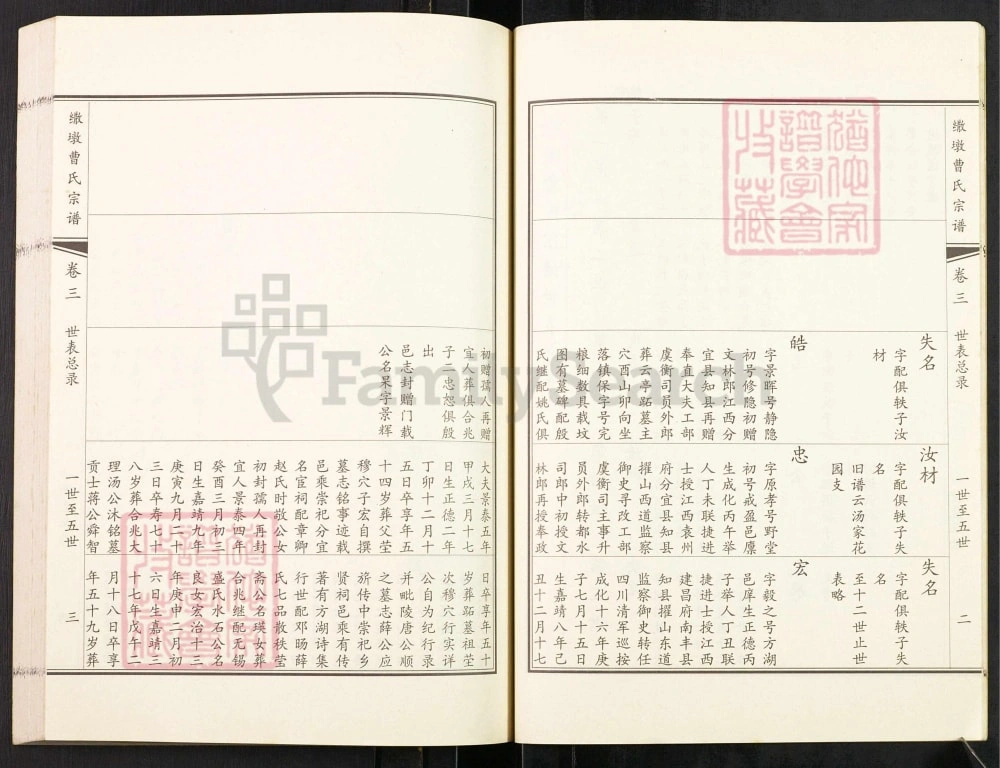 缴墩曹氏宗谱
卷三
世表总录
一世至五世
二
失名
字配俱轶子汝
材
皓
字景晖号静隐
初号修隐初赠
文林郎江西分
宜县知县再赠
奉直大夫工部
虞衡司员外郎
葬云亭跖墓主
穴酉山卯向坐
落镇保字号完
粮细数具载坟
图有墓碑配殷
氏继配姚氏俱
汝材
字配俱轶子失
名
旧谱云汤家花
园支
忠
字原孝号野堂
初号戒盈邑廪
生成化丙午举
人丁未联捷进
士授江西袁州
府分宜县知县
擢山西道监察
御史寻改工部
虞衡司主事升
员外郎转都水
司郎中初授文
林郎再授奉政
失名
字配俱轶子失
名
至十二世止世
表略
宏
字毅之号方湖
邑庠生正德丙
子举人丁丑联
捷进士授江西
建昌府南丰县
知县擢山东道
监察御史转任
四川清军巡按
成化十六年庚
子七月十五日
生嘉靖八年己
丑十二月十七
初赠孺人再赠
宜人葬俱合兆
子二忠恕俱殷
出
邑志封赠门载
公名杲字景辉
大夫景泰五年
甲戌三月十七
日生正德二年
丁卯十二月十
五日卒享年五
十四岁葬父茔
穆穴子宏自撰
墓志铭事迹载
邑乘崇祀分宜
名宦祠配章卿
赵氏时敔公女
初封孺人再封
宜人景泰四年
癸酉三月初三
日生嘉靖九年
庚寅九月二十
三日卒寿七十
八岁葬合兆大
理汤公沐铭墓
贡士蒋公舜智
日卒享年五十
岁葬跖墓祖茔
次穆穴行实详
公自为纪行录
并毗陵唐公顺
之墓志薛公应
旂传中崇祀乡
贤祠邑乘有传
著有方湖诗集
行世配邓旸薛
氏七品散秩莹
斋公名瑛女葬
合兆继配无锡
盛氏水石公名
艮女宏治十三
年庚申二月初
六日生嘉靖三
十七年戊午二
月十八日卒享
年五十九岁葬
缴墩曹氏宗谱
卷三
世表总录
一世至五世
三
FamilySearch